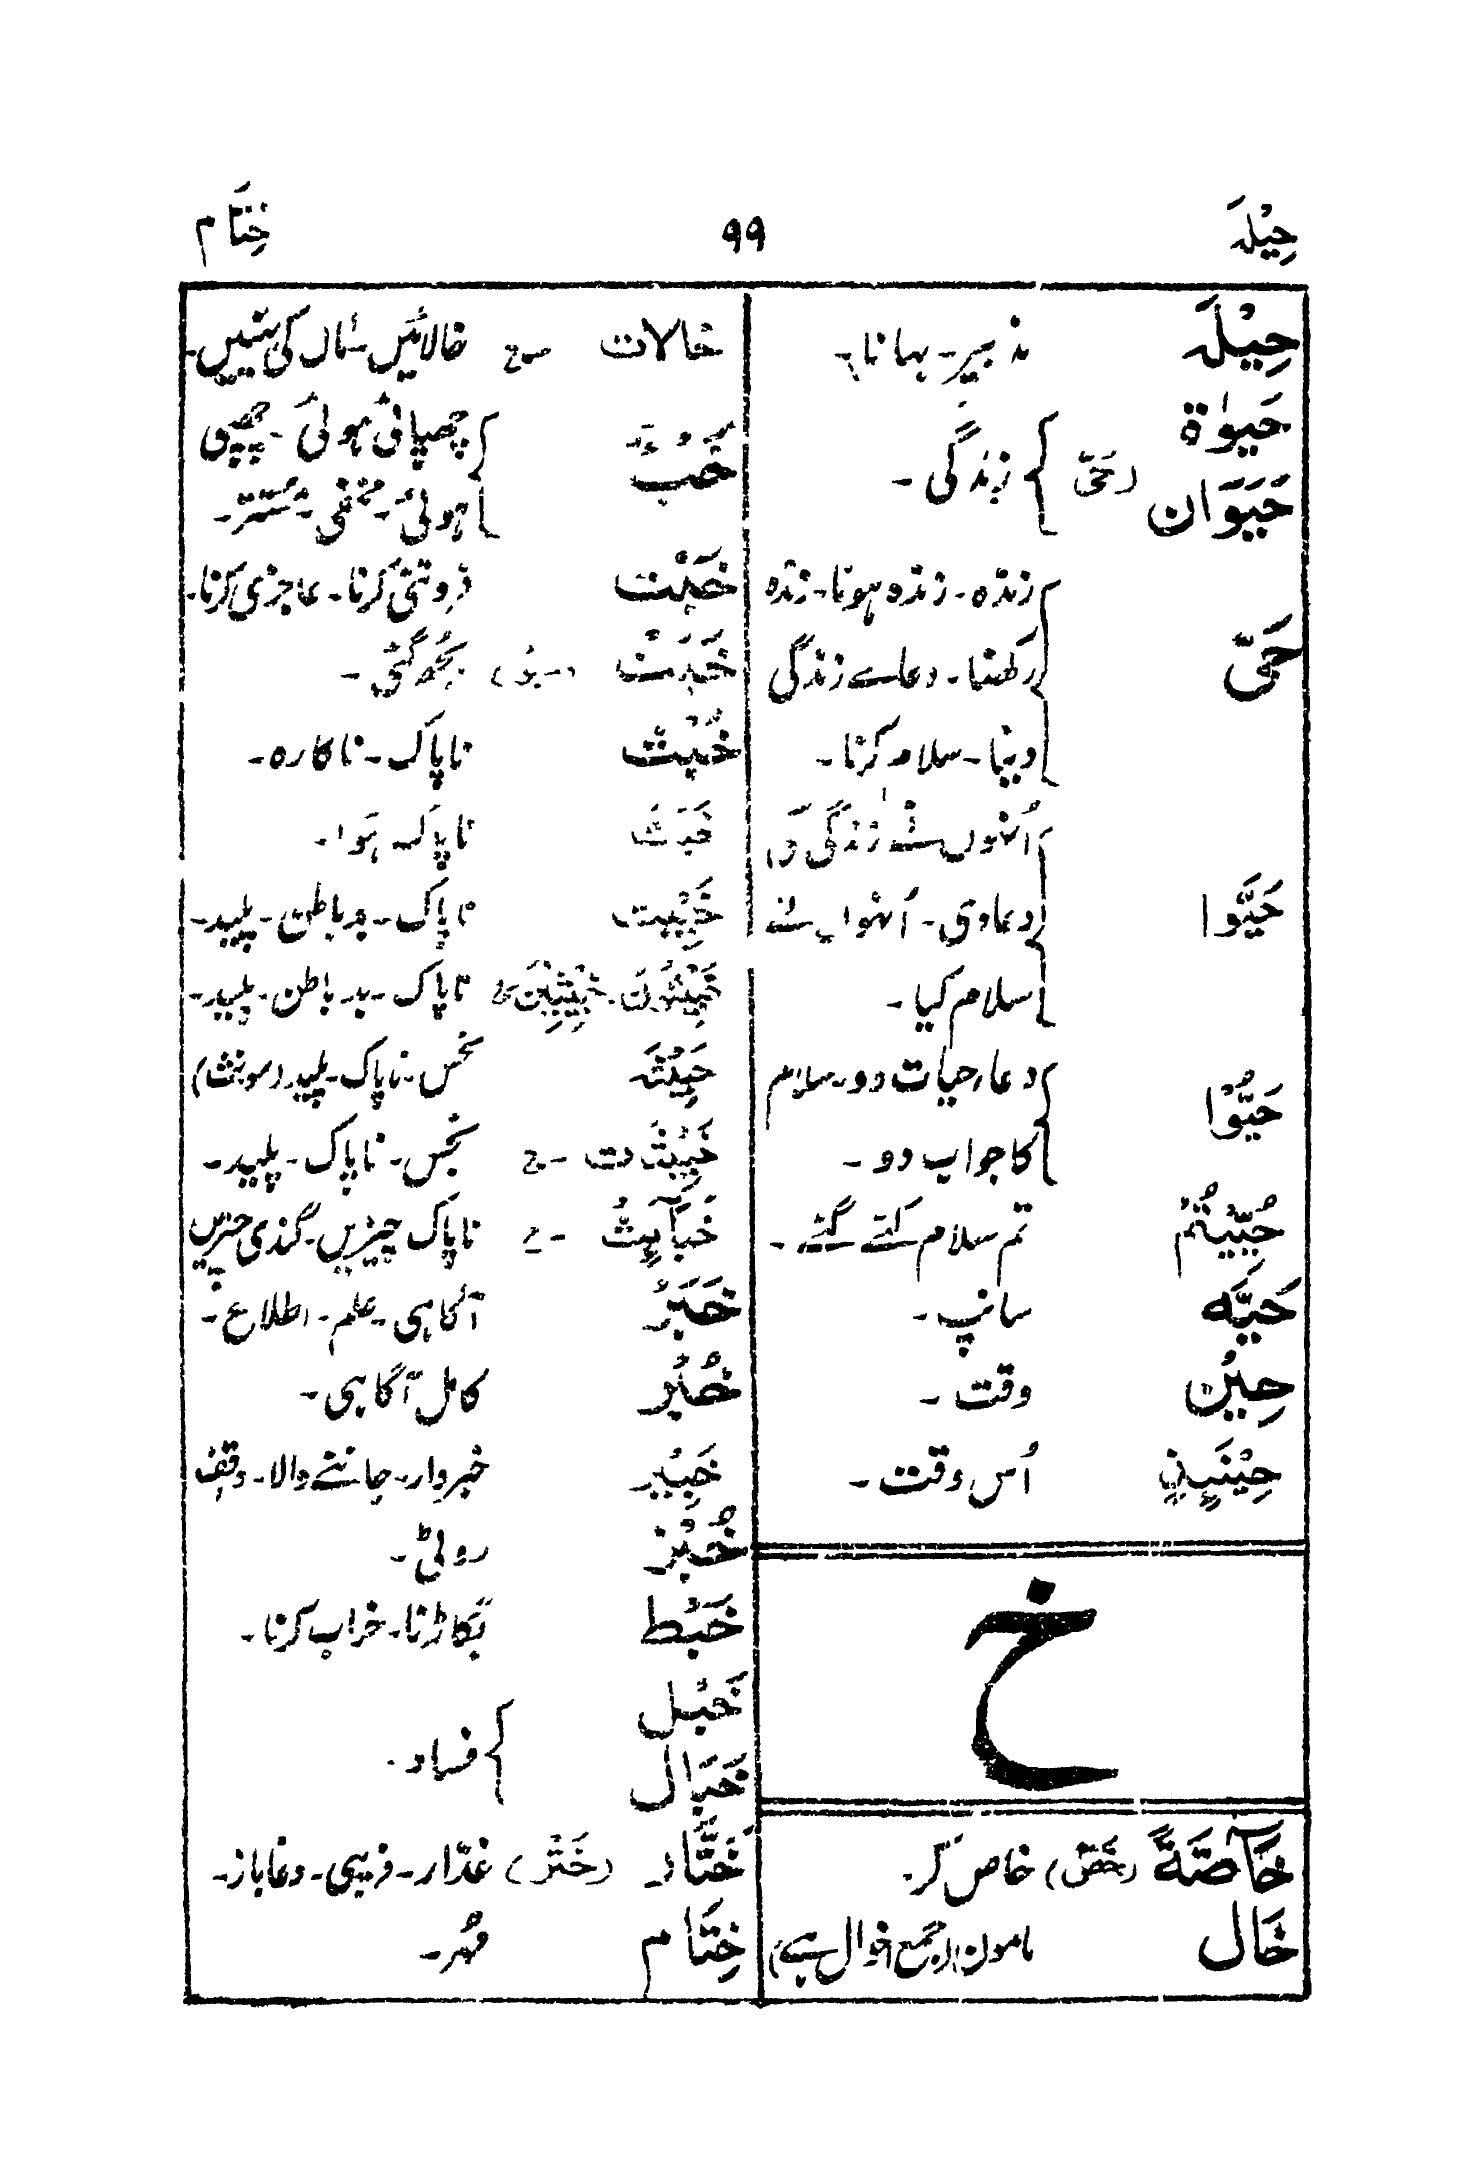 حِیْلَہ ۹۹ خِتَام
حِیْلَہ تدبیر۔ بہانا۔
حَیٰوۃ
حَیَوَان (حَیّ) زندگی۔
حَیّ زندہ۔ زندہ ہونا۔ زندہ
رکھنا۔ دعاے زندگی
دینا۔ سلام کرنا۔
حَیَّوْا اُنہوں نے زندگی دی
دعا دی۔ اُنہوں نے
سلام کیا۔
حَیُّوْا دعاء حیات دو۔ سلام
کا جواب دو۔
حُیِّیْتُمْ تم سلام کئے گئے۔
حَیَّہ سانپ۔
حِیْن وقت۔
حِیْنَئِذٍ اُس وقت۔
خ
خَآصَّۃً (خَصّ) خاص کر۔
خَال ماموں (جمع اخوال ہے)
خالات ج خالائیں۔ ماں کی بہنیں۔
خَبْءٌ چھپائی ہوئی۔ چھپی
ہوئی۔ مخفی۔ مُستتر۔
خَبْت فروتنی کرنا۔ عاجزی کرنا۔
خَبَتْ بُجھ گئی۔
خُبْث ناپاک۔ ناکارہ۔
خَبُثَ ناپاک ہوا۔
خَبِیْث ناپاک۔ بدباطن۔ پلید۔
خَبِیْثُوْنَ۔ خَبِیْثِیْنَ ج ناپاک۔ بد باطن۔ پلید۔
خَبِیْثَہ نجس۔ ناپاک۔ پلید (مونث)
خَبِیْثَات ج نجس۔ ناپاک۔ پلید۔
خَبَآئِثُ ج ناپاک چیزیں۔ گندی چیزیں
خَبَرٌ آگاہی۔ علم۔ اطلاع۔
خُبْر کامل آگاہی۔
خَبِیْر خبردار۔ جاننے والا۔ واقف
خُبْز روٹی۔
خَبْط بگاڑنا۔ خراب کرنا۔
خَبْل
خَبَال فساد۔
خَتَّار (خَتْر) غدّار۔ فریبی۔ دغاباز۔
خِتَام مُہر۔